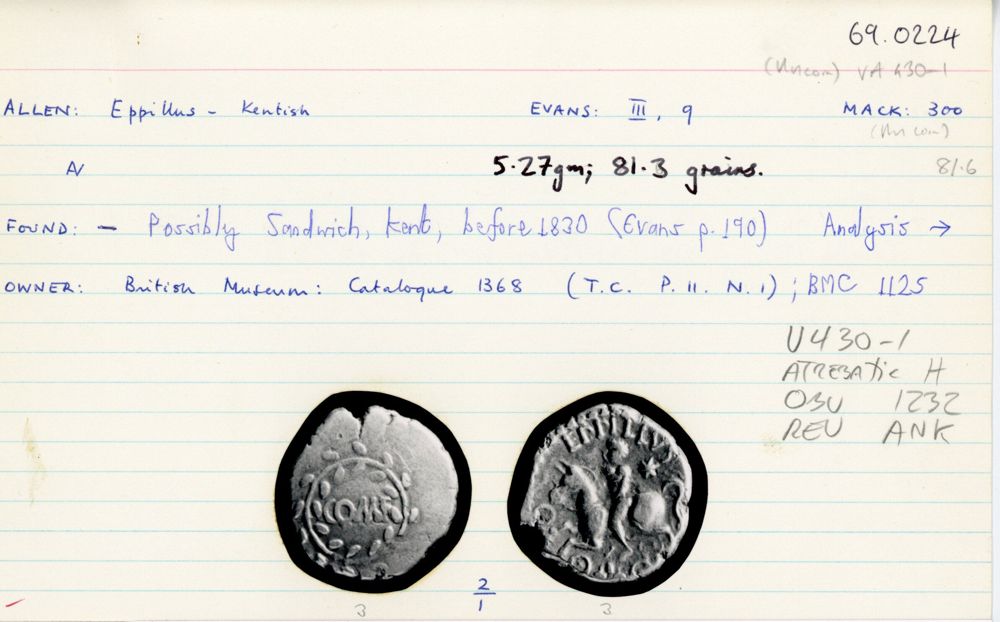 69.0224
(Uncom) VA 430-1
ALLEN: Eppillus - Kentish EVANS: III, 9 MACK: 300
(Un com)
AV 5.27gm; 81.3 grains. 81.6
FOUND: - Possibly Sandwich, Kent, before 1830 (Evans p.190) Analysis →
OWNER: British Museum: Catalogue 1368 (T.C. P.11. N.1) ; BMC 1125
V430-1
ATREBATIC H
OBV 1232
REV ANK
COMF
EPPILLVS
2
1
3 3